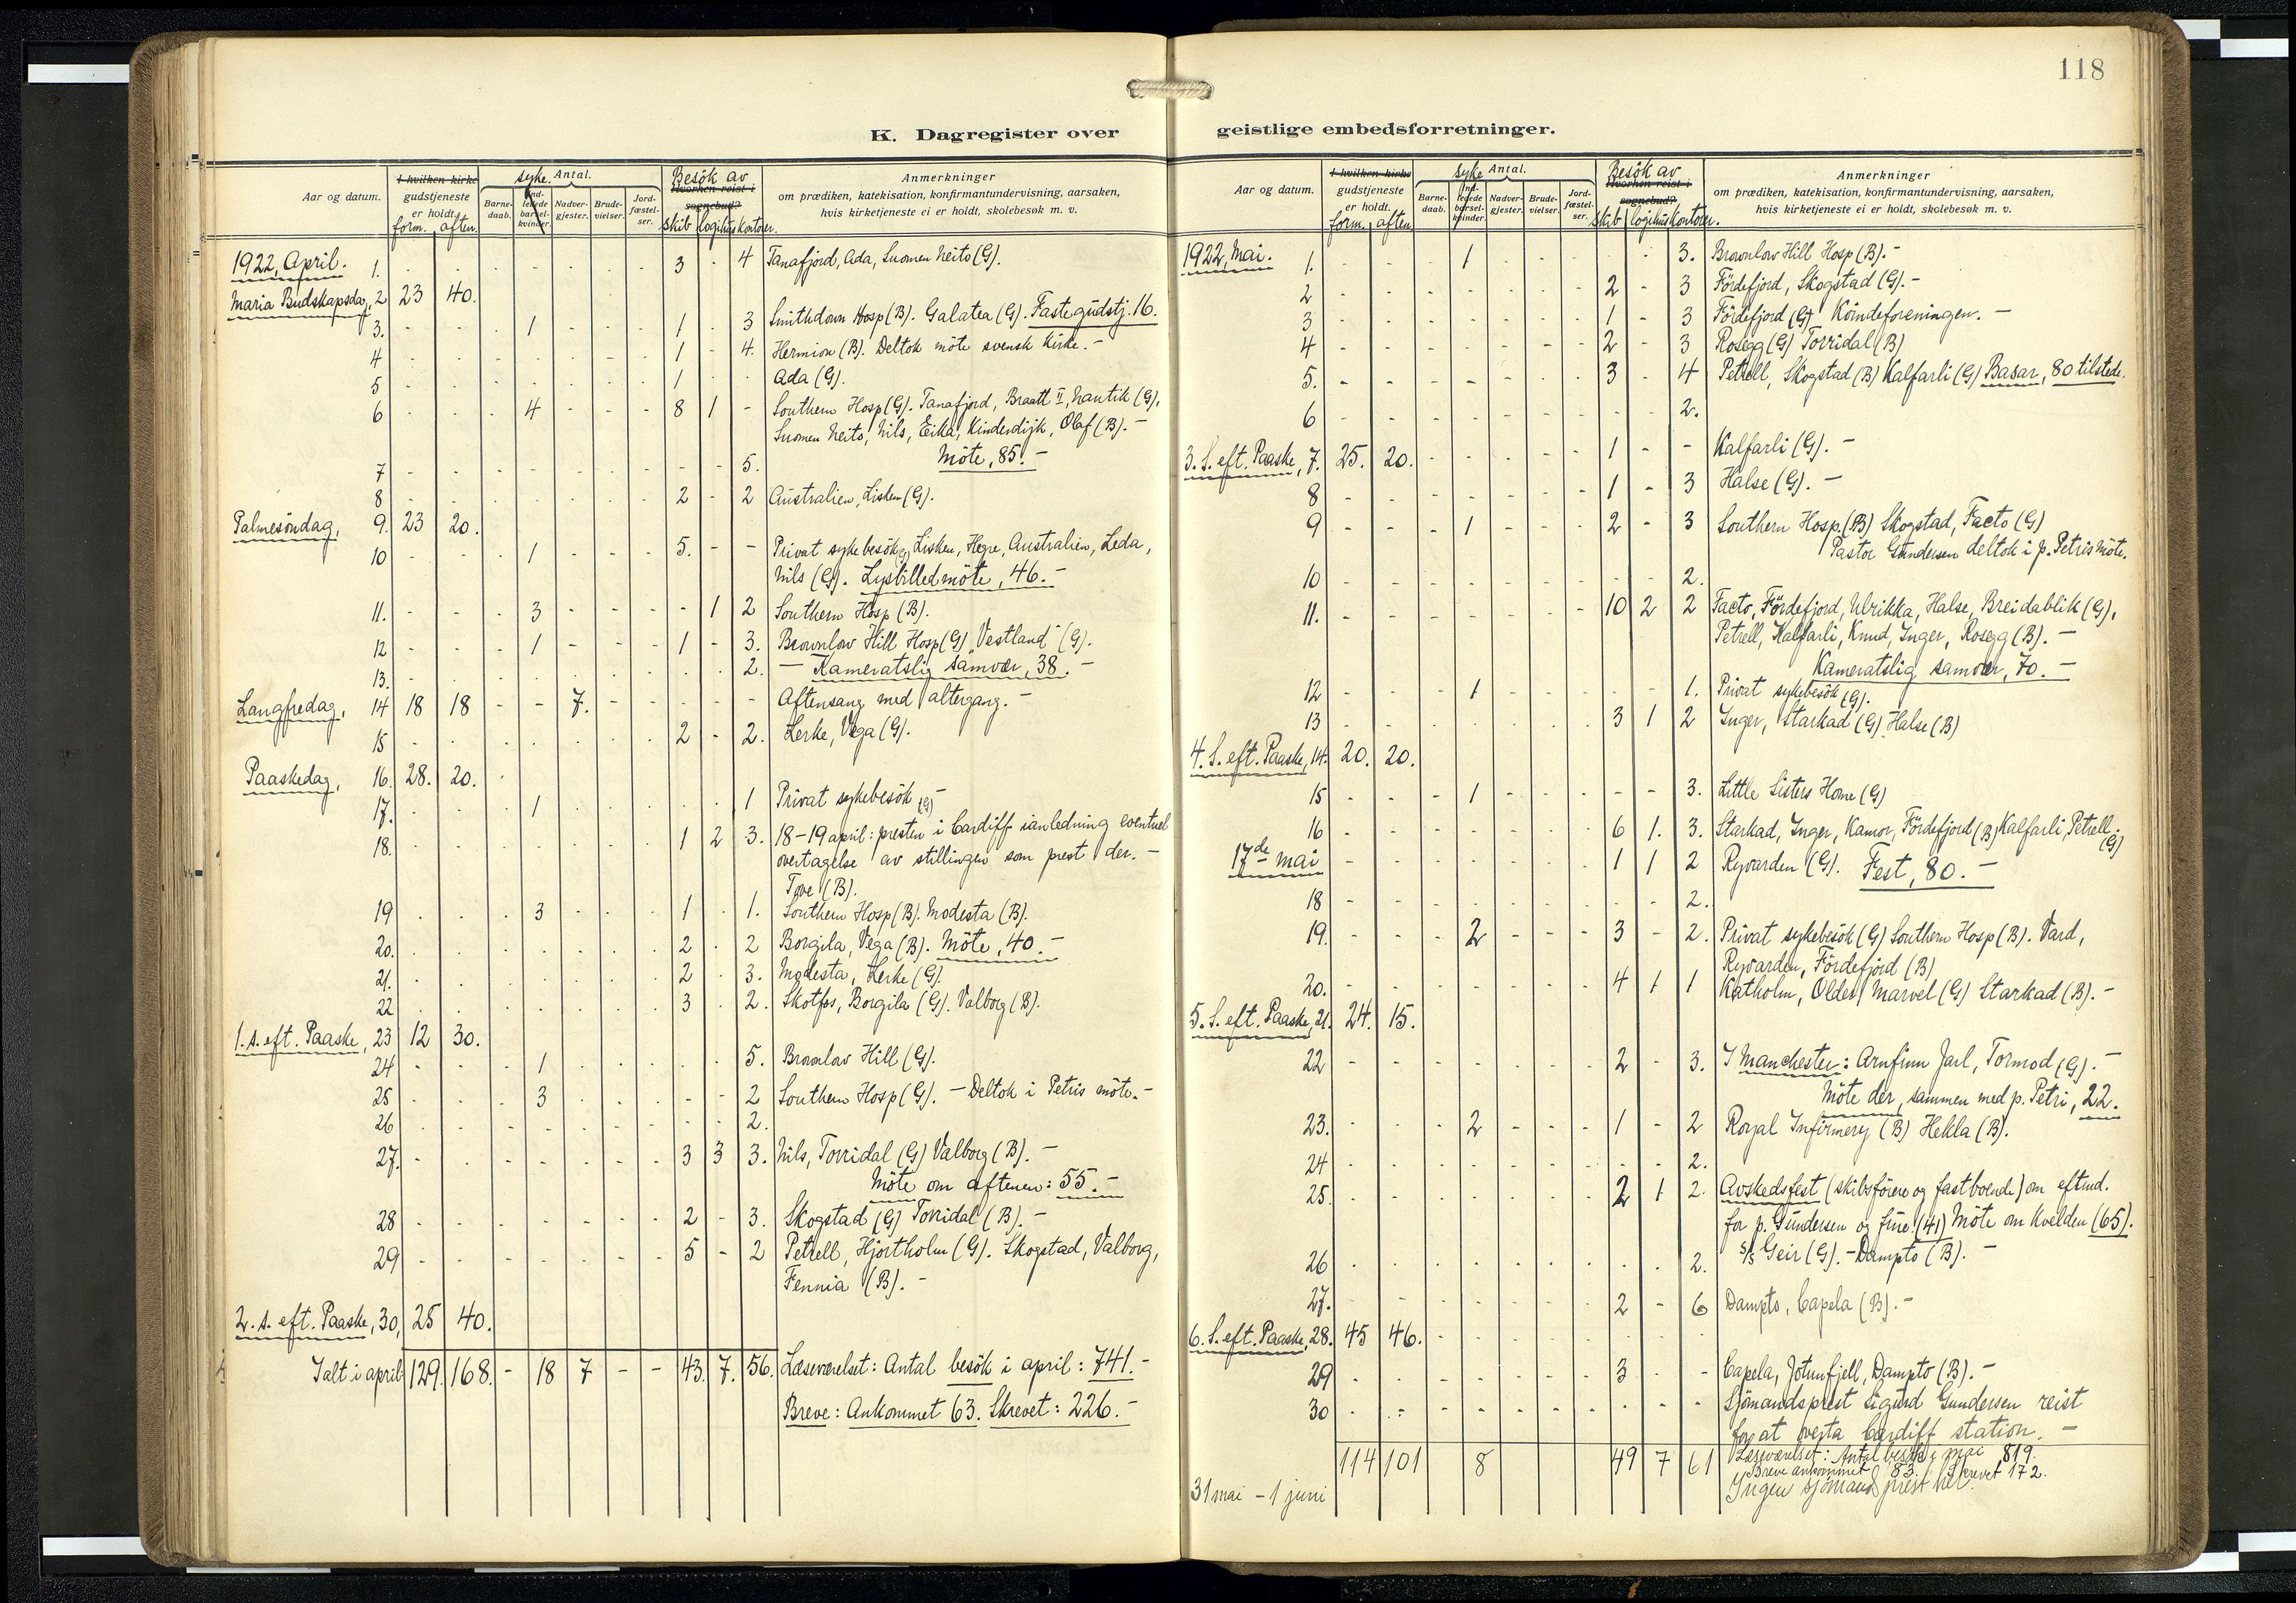 118
K. Dagregister over geistlige embedsforretninger.
Aar og datum. I hvilken kirke gudstjeneste er holdt. form. aften. syke. Antal. Barnedaab. Indledede barselkvinder. Nadvergjester. Brudevielser. Jordfæstelser. Besök av Hvorhen reist i sognebud? skib logihus kontorer.
Anmerkninger
om prædiken, katekisation, konfirmantundervisning, aarsaken,
hvis kirketjeneste ei er holdt, skolebesøk m. v.
1922, April. 1. - - - - - - - 3 4 Tanafjord, Ada, Suomen Neito (G).
Maria Budskapsdag, 2 23 40.
3. - - - 1 - - - 1 - 3 Smithdown Hosp (B). Galatea (G). Fastegudstj. 16.
4 - - - - - - - 1 - 4. Hermion (B). Deltok möte svensk Kirke. -
5 - - - - - - - 1 - - Ada (G).
6 - - - 4 - - - 8 1 - Southern Hosp (G). Tanafjord, Braatt II, Nautik (G),
Suomen Neito, Nils, Eika, Kinderdijk, Olaf (B). -
7 - - - - - - - - - 5. Möte, 85. -
8 - - - - - - - 2 - 2 Australien, Lisken (G).
Palmesöndag, 9. 23 20.
10 - - - 1 - - - 5. - - Privat sykebesök (G) Lisken, Hegre, Australien, Leda,
Nils (G). Lysbilledmöte, 46. -
11. - - - 3 - - - - 1 2 Southern Hosp (B).
12 - - - 1 - - - 1 - 3. Brownlow Hill Hosp (G) "Vestland" (G).
13. - - - - - - - - - 2. - Kameratslig samvær, 38. -
Langfredag, 14 18 18 - - 7. - - - - - Aftensang med altergang. -
15 - - - - - - - 2 - 2. Lerke, Vega (G).
Paaskedag, 16. 28. 20.
17. - - - 1 - - - - - 1 Privat sykebesök (G) -
18. - - - - - - - 1 2 3. 18-19 april: presten i Cardiff i anledning eventuel
overtagelse av stillingen som prest der. -
Tove (B).
19 - - - 3 - - - 1 - 1. Southern Hosp (B). Modesta (B).
20. - - - - - - - 2 - 2 Borgila, Vega (B). Möte, 40. -
21. - - - - - - - 2 - 3. Modesta, Lerke (G).
22 - - - - - - - 3 - 2. Skotfos, Borgila (G). Valborg (B).
1. s. eft. Paaske, 23 12 30.
24 - - - 1 - - - - - 5. Brownlow Hill (G).
25 - - - 3 - - - - - 2 Southern Hosp (G). - Deltok i Petris möte. -
26 - - - - - - - - - 2.
27. - - - - - - - 3 3 3. Nils, Torridal (G) Valborg (B). -
Möte om aftenen: 55. -
28 - - - - - - - 2 - 3. Skogstad (G) Torridal (B). -
29 - - - - - - - 5 - 2 Petrell, Hjortholm (G). Skogstad, Valborg,
Fennia (B). -
2. s. eft. Paaske, 30, 25 40.
Ialt i april: 129. 168. - 18 7 - - 43. 7. 56. Læseværelset: Antal besök i april: 741. -
Breve: Ankommet 63. Skrevet: 226. -
Aar og datum. I hvilken kirke gudstjeneste er holdt. form. aften. syke Antal. Barnedaab. Indledede barselkvinder. Nadvergjester. Brudevielser. Jordfæstelser. Besök av Hvorhen reist i sognebud? skib logihus kontorer.
Anmerkninger
om prædiken, katekisation, konfirmantundervisning, aarsaken,
hvis kirketjeneste ei er holdt, skolebesøk m. v.
1922, Mai. 1. - - - 1 - - - - - 3. Brownlow Hill Hosp (B). -
2 - - - - - - - 2 - 3 Fördefjord, Skogstad (G). -
3 - - - - - - - 1 - 3 Fördefjord (G) Kvindeforeningen. -
4 - - - - - - - 2 - 3 Rosegg (G) Torridal (B)
5. - - - - - - - 3 - 4 Petrell, Skogstad (B) Kalfarli (G) Basar, 80 tilstede.
6 - - - - - - - - - 2.
3. S. eft. Paaske, 7. 25. 20. - - - - - 1 - - Kalfarli (G). -
8 - - - - - - - 1 - 3 Halse (G). -
9 - - - 1 - - - 2 - 3 Southern Hosp. (B) Skogstad, Facto (G)
Pastor Gundersen deltok i p. Petris möte.
10 - - - - - - - - - 2.
11. - - - - - - - 10 2 2 Facto, Fördefjord, Ulrikka, Halse, Breidablik (G),
Petrell, Kalfarli, Knud, Inger, Rosegg (B). -
Kameratslig samvær, 70. -
12 - - - 1 - - - - - 1. Privat sykebesök (G).
13 - - - - - - - 3 1 2 Inger, Starkad (G). Halse (B)
4. S. eft. Paaske, 14. 20. 20.
15 - - - 1 - - - - - 3. Little Sisters Home (G)
16 - - - - - - - 6 1. 3. Starkad, Inger, Kamor, Fördefjord (B) Kalfarli, Petrell. (G)
17de mai - - - - - - - 1 1 2 Ryvarden (G). Fest, 80. -
18 - - - - - - - - - 2.
19. - - - 2 - - - 3 - 2. Privat sykebesök (G) Southern Hosp (B). Vard,
Ryvarden, Fördefjord (B)
20. - - - - - - - 4 1 1 Katholm, Olden, Marvel (G) Starkad (B). -
5. S. eft. Paaske, 21. 24. 15.
22 - - - - - - - 2 - 3. I Manchester: Arnfinn Jarl, Tormod (G). -
Möte der, sammen med p. Petri, 22.
23. - - - 2 - - - 1 - 2 Royal Infirmery (B) Hekla (B).
24 - - - - - - - - - 2.
25. - - - - - - - 2 1 2. Avskedsfest (skibsförere og fastboende) om eftmd.
for p. Gundersen og frue (41) Möte om kvelden (65).
26 - - - - - - - - - 2. s/s Geir (G). - Dampto (B). -
27. - - - - - - - 2 - 6 Dampto, Capela (B). -
6. S. eft. Paaske, 28. 45 46.
29 - - - - - - - 3 - - Capela, Jotunfjell, Dampto (B). -
30 - - - - - - - - - - Sjömandsprest Sigurd Gundersen reist
for at overta Cardiff station. -
114 101 8 49 7 61 Læseværelset: Antal besök i mai 819.
Breve ankommet 83. Skrevet 172.
31 mai - 1 juni Ingen sjömandsprest her.